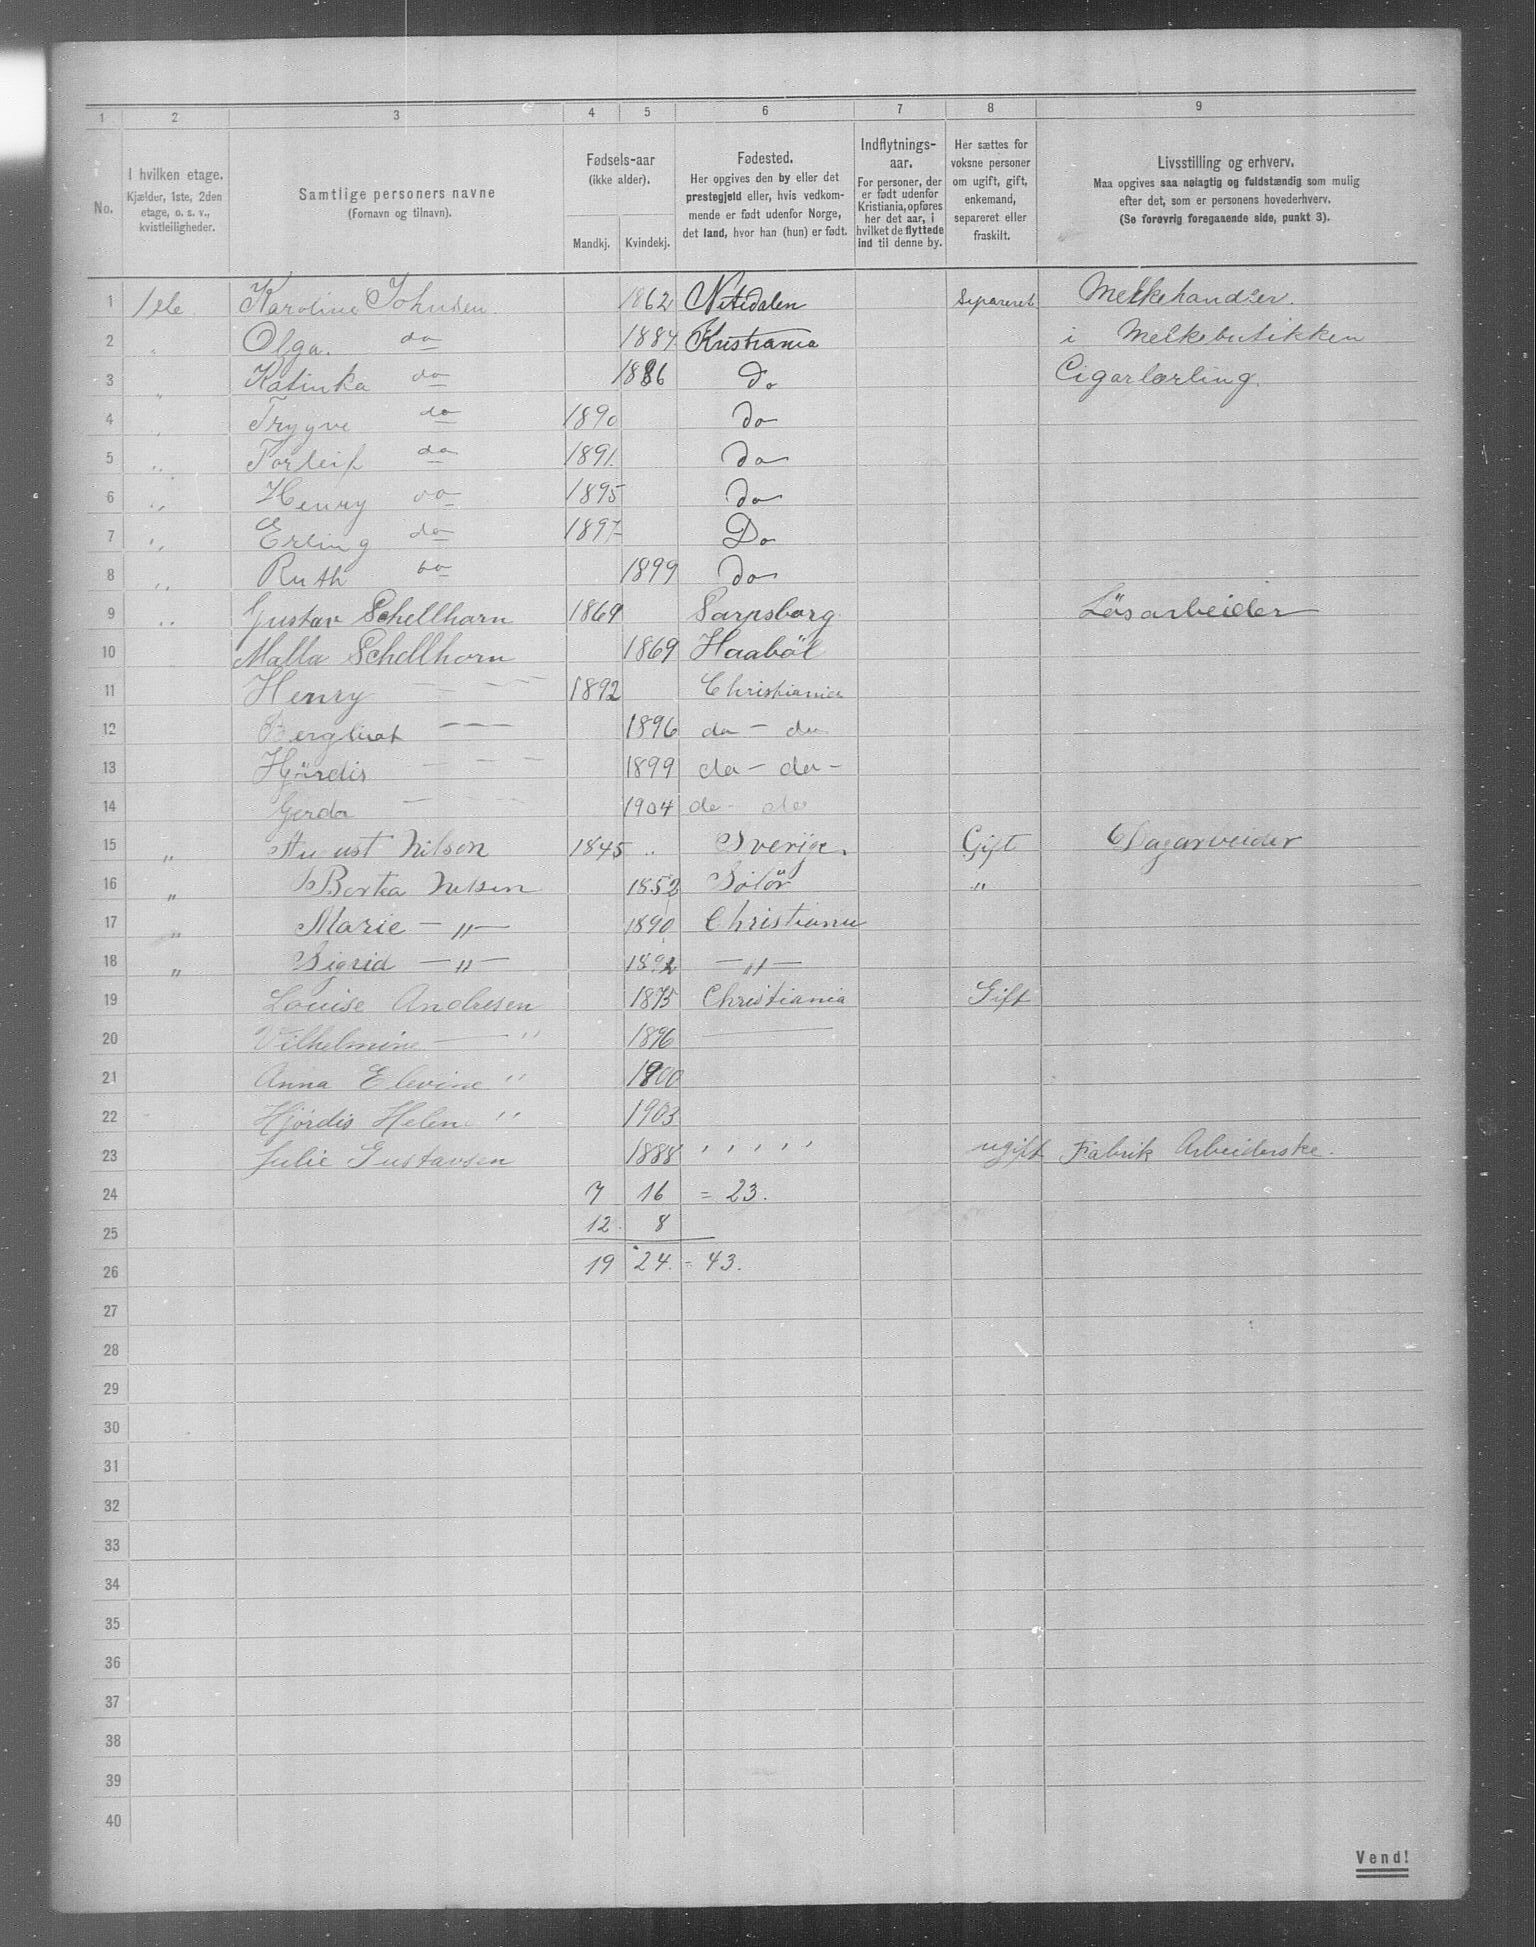 1 2 3 4 5 6 7 8 9
No.
I hvilken etage.
Kjælder, 1ste, 2den
etage, o. s. v.,
kvistleiligheder.
Samtlige personers navne
(Fornavn og tilnavn).
Fødsels-aar
(ikke alder).
Mandkj. Kvindekj.
Fødested.
Her opgives den by eller det
prestegjeld eller, hvis vedkom-
mende er født udenfor Norge,
det land, hvor han (hun) er født.
Indflytnings-
aar.
For personer, der
er født udenfor
Kristiania, opføres
her det aar, i
hvilket de flyttede
ind til denne by.
Her sættes for
voksne personer
om ugift, gift,
enkemand,
separeret eller
fraskilt.
Livsstilling og erhverv.
Maa opgives saa nøiagtig og fuldstændig som mulig
efter det, som er personens hovederhverv.
(Se forøvrig foregaaende side, punkt 3).
1 1ste Karoline Johnsen 1862 Nitedalen Separeret Melkehandler.
2 " Olga. do 1884 Kristiania i Melkebutikken
3 " Katinka do 1886 Do Cigarlærling.
4 " Trygve do 1890 do
5 " Torleif do 1891. do
6 " Henry do 1895 do
7 " Erling do 1897 Do
8 " Ruth do 1899 do
9 " Gustav Schellhorn 1869 Sarpsborg Løsarbeider
10 Malla Schellhorn 1869 Haabøl
11 Henry — — — 1892 Christiania
12 Bergliot — — — 1896 do — do
13 Hjördis — — — 1899 do — do —
14 Gerda — — — 1904 do — do
15 " August Nilsen 1845 " Sverige. Gift Dagarbeider
16 " Berta Nilsen 1852 Solør "
17 " Marie — " — 1890 Christiania
18 " Sigrid — " — 1892 — " —
19 Louise Andresen 1875 Christiania Gift
20 Vilhelmine — " 1896 —
21 Anna Elevine " 1900
22 Hjördis Helene " 1903
23 Julie Gustavsen 1888 " " " ugift Fabrik Arbeiderske.
24 7 16 = 23.
25 12. 8
26 19 24. = 43.
27
28
29
30
31
32
33
34
35
36
37
38
39
40
Vend!